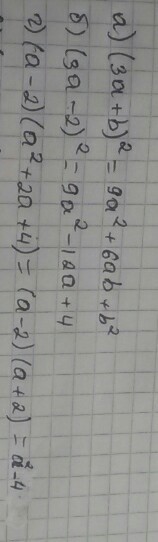 а) (3a+b)² = 9a² + 6ab + b²
б) (3a-2)² = 9a² - 12a + 4
г) (a-2)(a² + 2a + 4) = (a-2)(a+2) = a² - 4